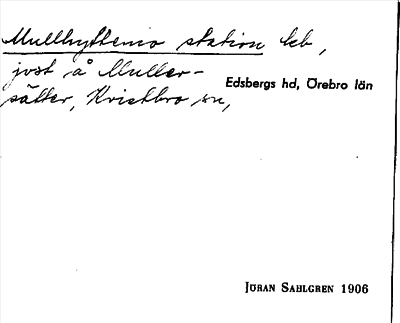 Mullhyttemo station lcb,
just å Muller-
sätter, Kvistbro sn,
Edsbergs hd, Örebro län
JÖRAN SAHLGREN 1906